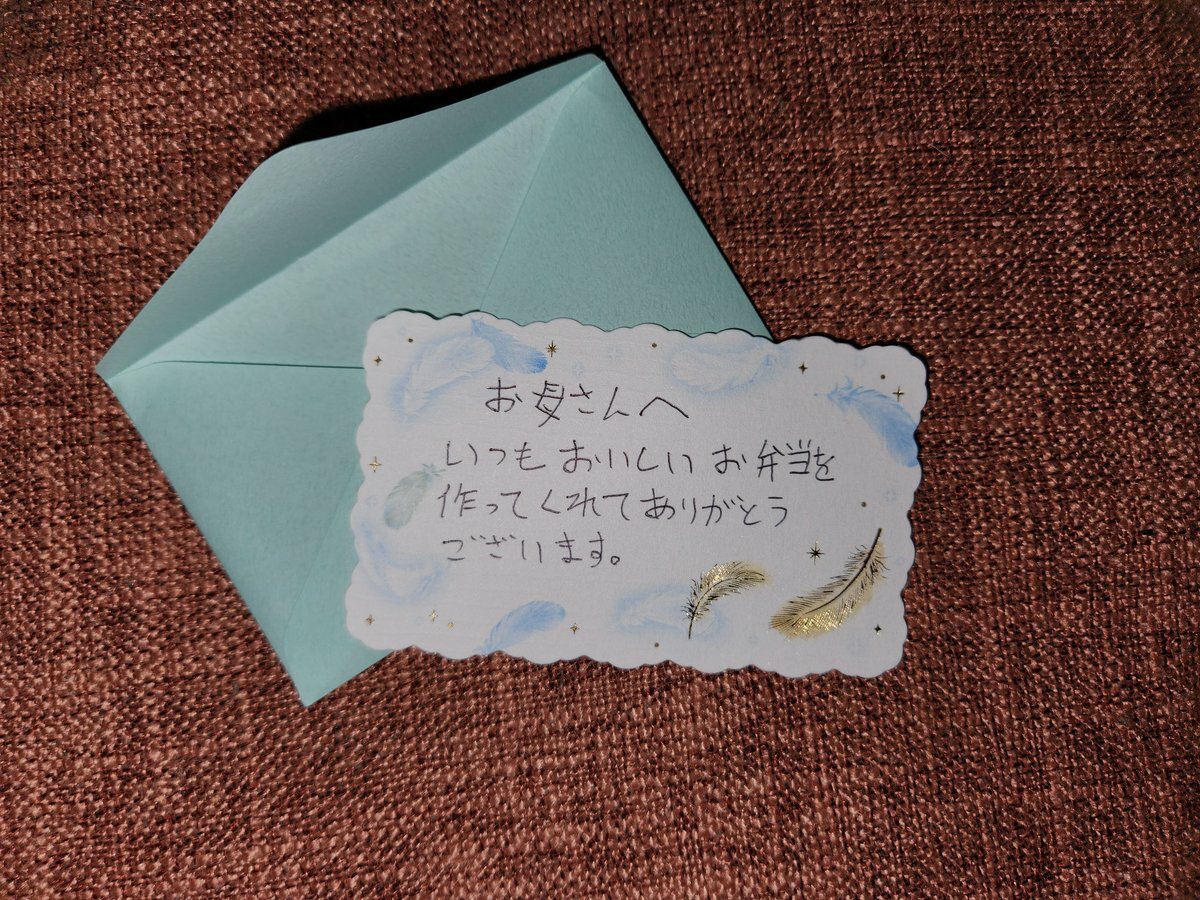 お母さんへ
いつもおいしいお弁当を
作ってくれてありがとう
ございます。